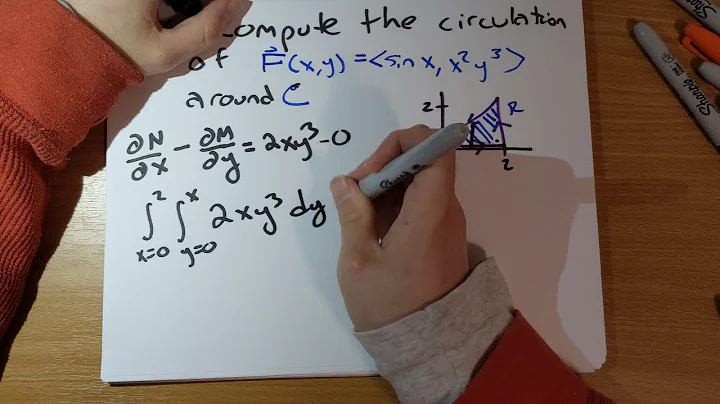 compute the circulation
of F⃗(x,y) = <sin x, x²y³>
around C
2
R
2
∂N/∂x − ∂M/∂y = 2xy³ − 0
∫_{x=0}^{2} ∫_{y=0}^{x} 2xy³ dy
Sharpie